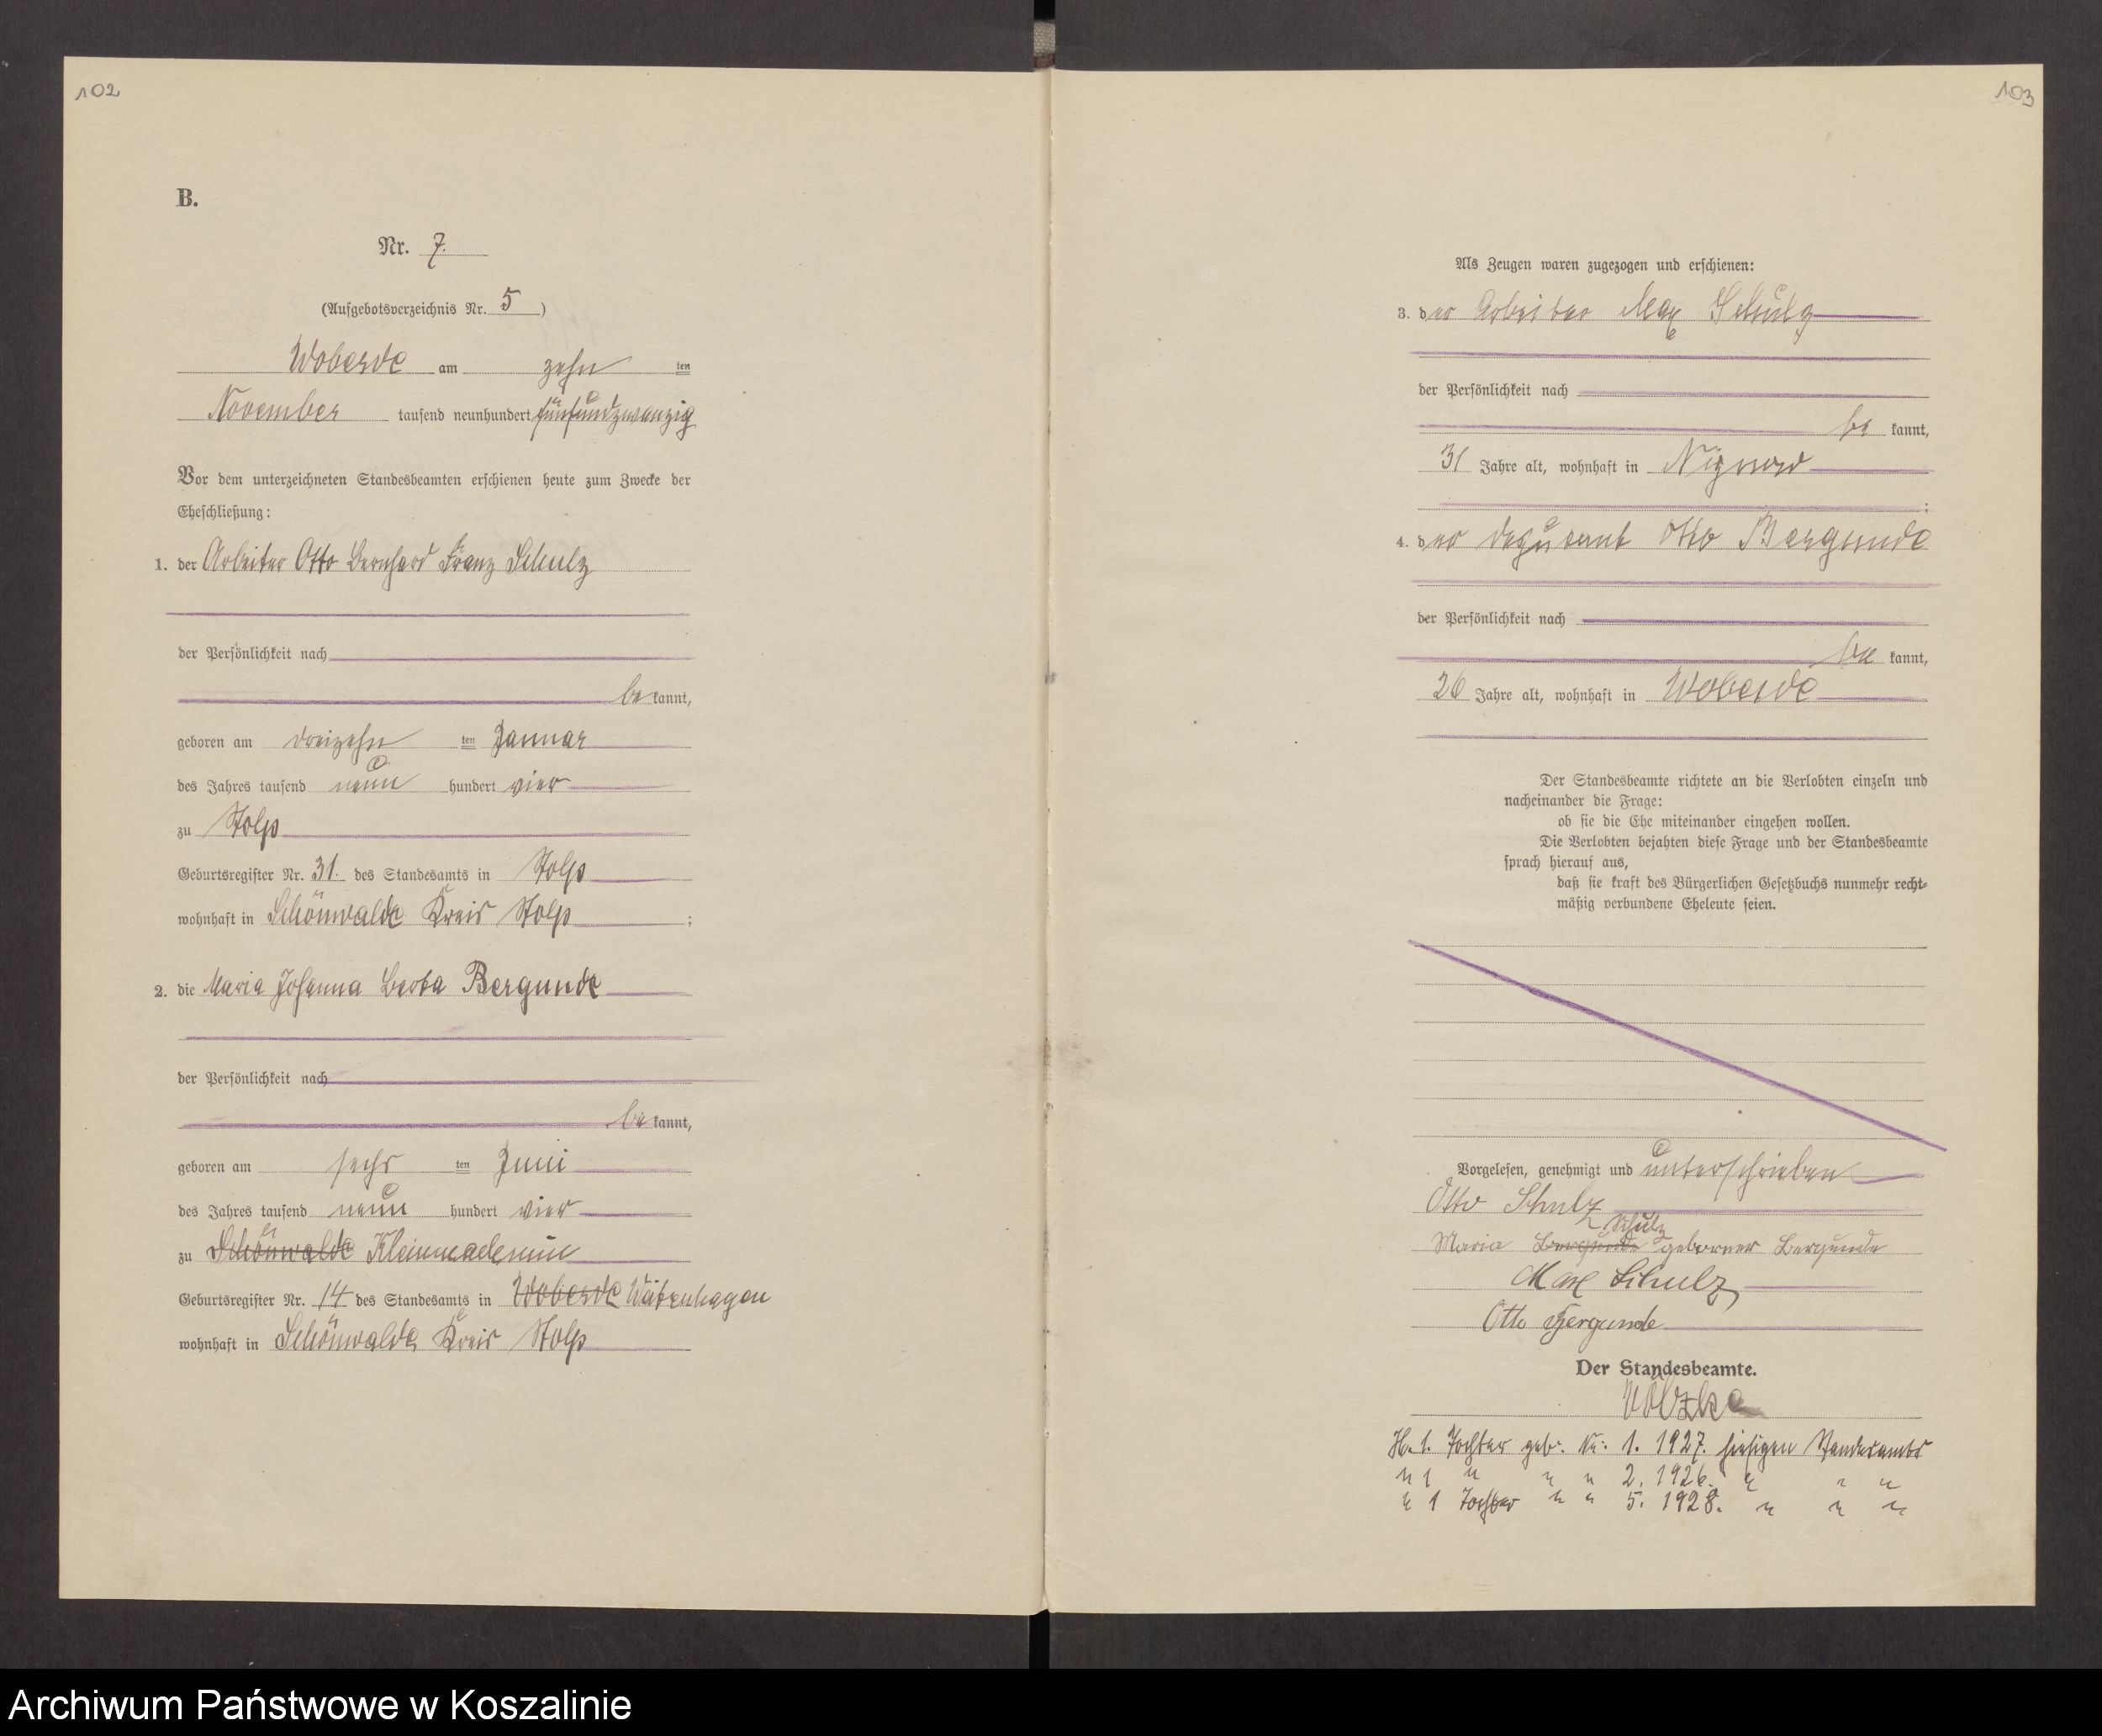 102
B.
Nr. 7.
(Aufgebotsverzeichnis Nr. 5)
Woberde am zehn ten
November tausend neunhundert fünfundzwanzig
Vor dem unterzeichneten Standesbeamten erschienen heute zum Zwecke der
Eheschließung:
1. der Arbeiter Otto Bernhard Franz Schulz
der Persönlichkeit nach
bekannt,
geboren am dreizehn ten Januar
des Jahres tausend neun hundert vier
zu Stolp
Geburtsregister Nr. 31. des Standesamts in Stolp
wohnhaft in Schönwalde Kreis Stolp ;
2. die Maria Johanna Berta Bergunde
der Persönlichkeit nach
bekannt,
geboren am sechs ten Juni
des Jahres tausend neun hundert vier
zu Schönwalde
Geburtsregister Nr. 14 des Standesamts in Woberde
wohnhaft in Schönwalde Kreis Stolp
103
Als Zeugen waren zugezogen und erschienen:
3. der Arbeiter Max Schulz
der Persönlichkeit nach
bekannt,
31 Jahre alt, wohnhaft in
;
4. der Deputant Otto Bergunde
der Persönlichkeit nach
bekannt,
26 Jahre alt, wohnhaft in Woberde
Der Standesbeamte richtete an die Verlobten einzeln und
nacheinander die Frage:
ob sie die Ehe miteinander eingehen wollen.
Die Verlobten bejahten diese Frage und der Standesbeamte
sprach hierauf aus,
daß sie kraft des Bürgerlichen Gesetzbuchs nunmehr recht-
mäßig verbundene Eheleute seien.
Vorgelesen, genehmigt und unterschrieben
Otto Schulz
Schulz
Maria Bergunde geborner Bergunde
Max Schulz
Otto Bergunde
Der Standesbeamte.
Völzke
H. 1. Tochter geb. Nr. 1. 1927. hiesigen Standesamts
" 1 " " " 2. 1926. " " "
" 1 Tochter " " 5. 1928. " " "
Archiwum Państwowe w Koszalinie